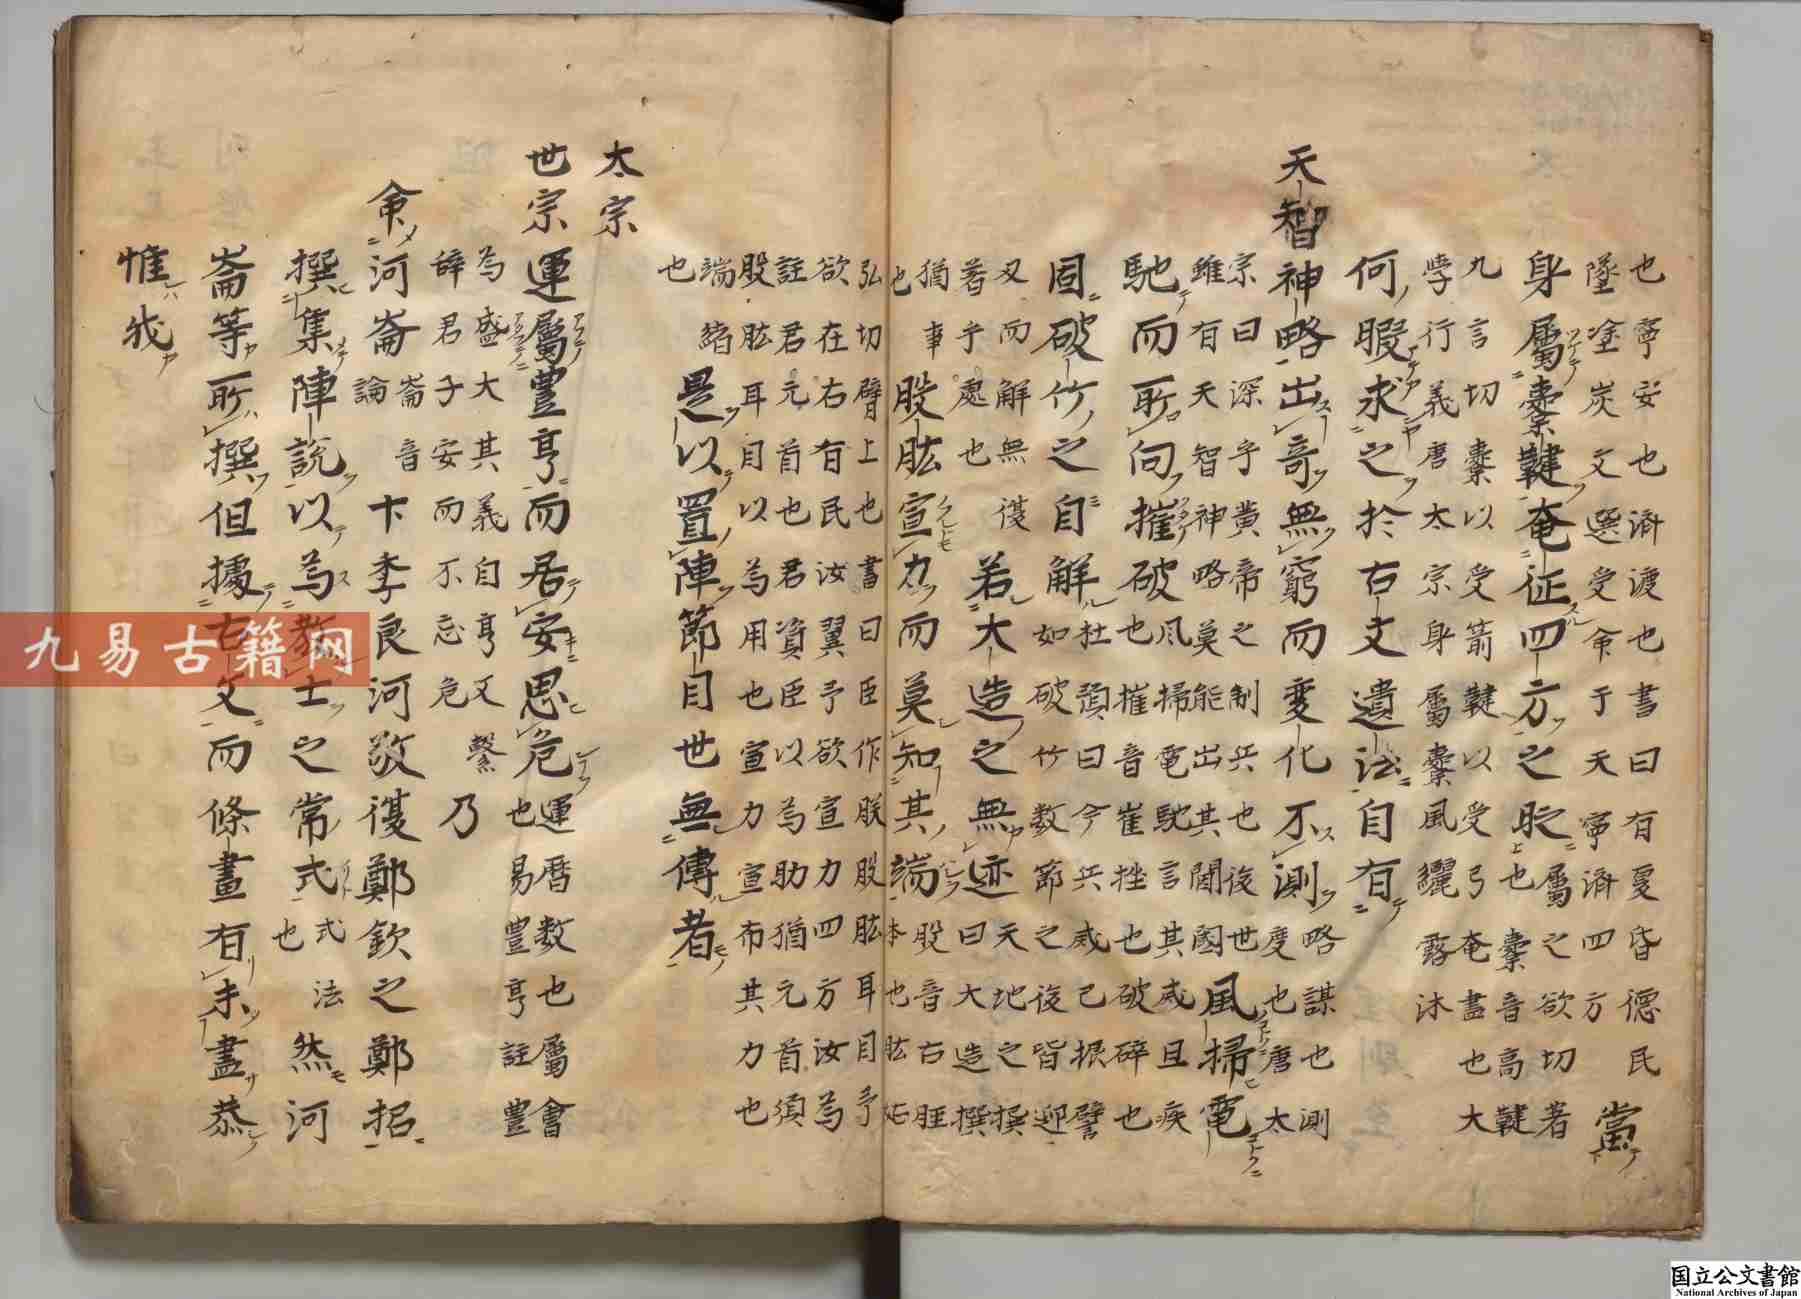 也寧安也済渡也書曰有夏昏德民
墜塗炭文選受命于天寧済四方 當
身屬櫜鞬奄征四方之
屬之欲切著
也櫜音高鞬
九言切櫜以受箭鞬以受弓奄盡也大
學行義唐太宗身屬櫜風纚露沐
何暇求之於古文遺法自有
天智神略出奇無窮而変化不測
略謀也測
度也唐太
宗曰深乎黄帝之制兵也後世
雖有天智神略莫能出其閫閾
風掃電
馳而所向摧破
風掃電馳言其威且疾
也摧音崔挫也破碎也
固破竹之自解
杜預曰今兵威已振譬
如破竹数節之後皆迎
刃而解無復
著手處也
若大造之無迹
天地之撰
曰大造撰
猶事
也
股肱宣力而莫知其端
股音古脛
本也肱
弘切臂上也書曰臣作朕股肱耳目予
欲在右有民汝翼予欲宣力四方汝為
註君元首也君資臣以為助猶元首須
股肱耳目以為用也宣力宣布其力也
端緒
也
是以置陣節目世無傳者
太宗
世宗運屬豊亨而居安思危
運暦数也屬會
也易豊亨註豊
為盛大其義自亨又繫
辞君子安而不忘危
乃
命河崙
崙音
論
卞季良河敬復鄭欽之鄭招
撰集陣說以為教士之常式
式法
也
然河
崙等所撰但據古文而條畫有未盡恭
惟我
九易古籍网
国立公文書館
National Archives of Japan